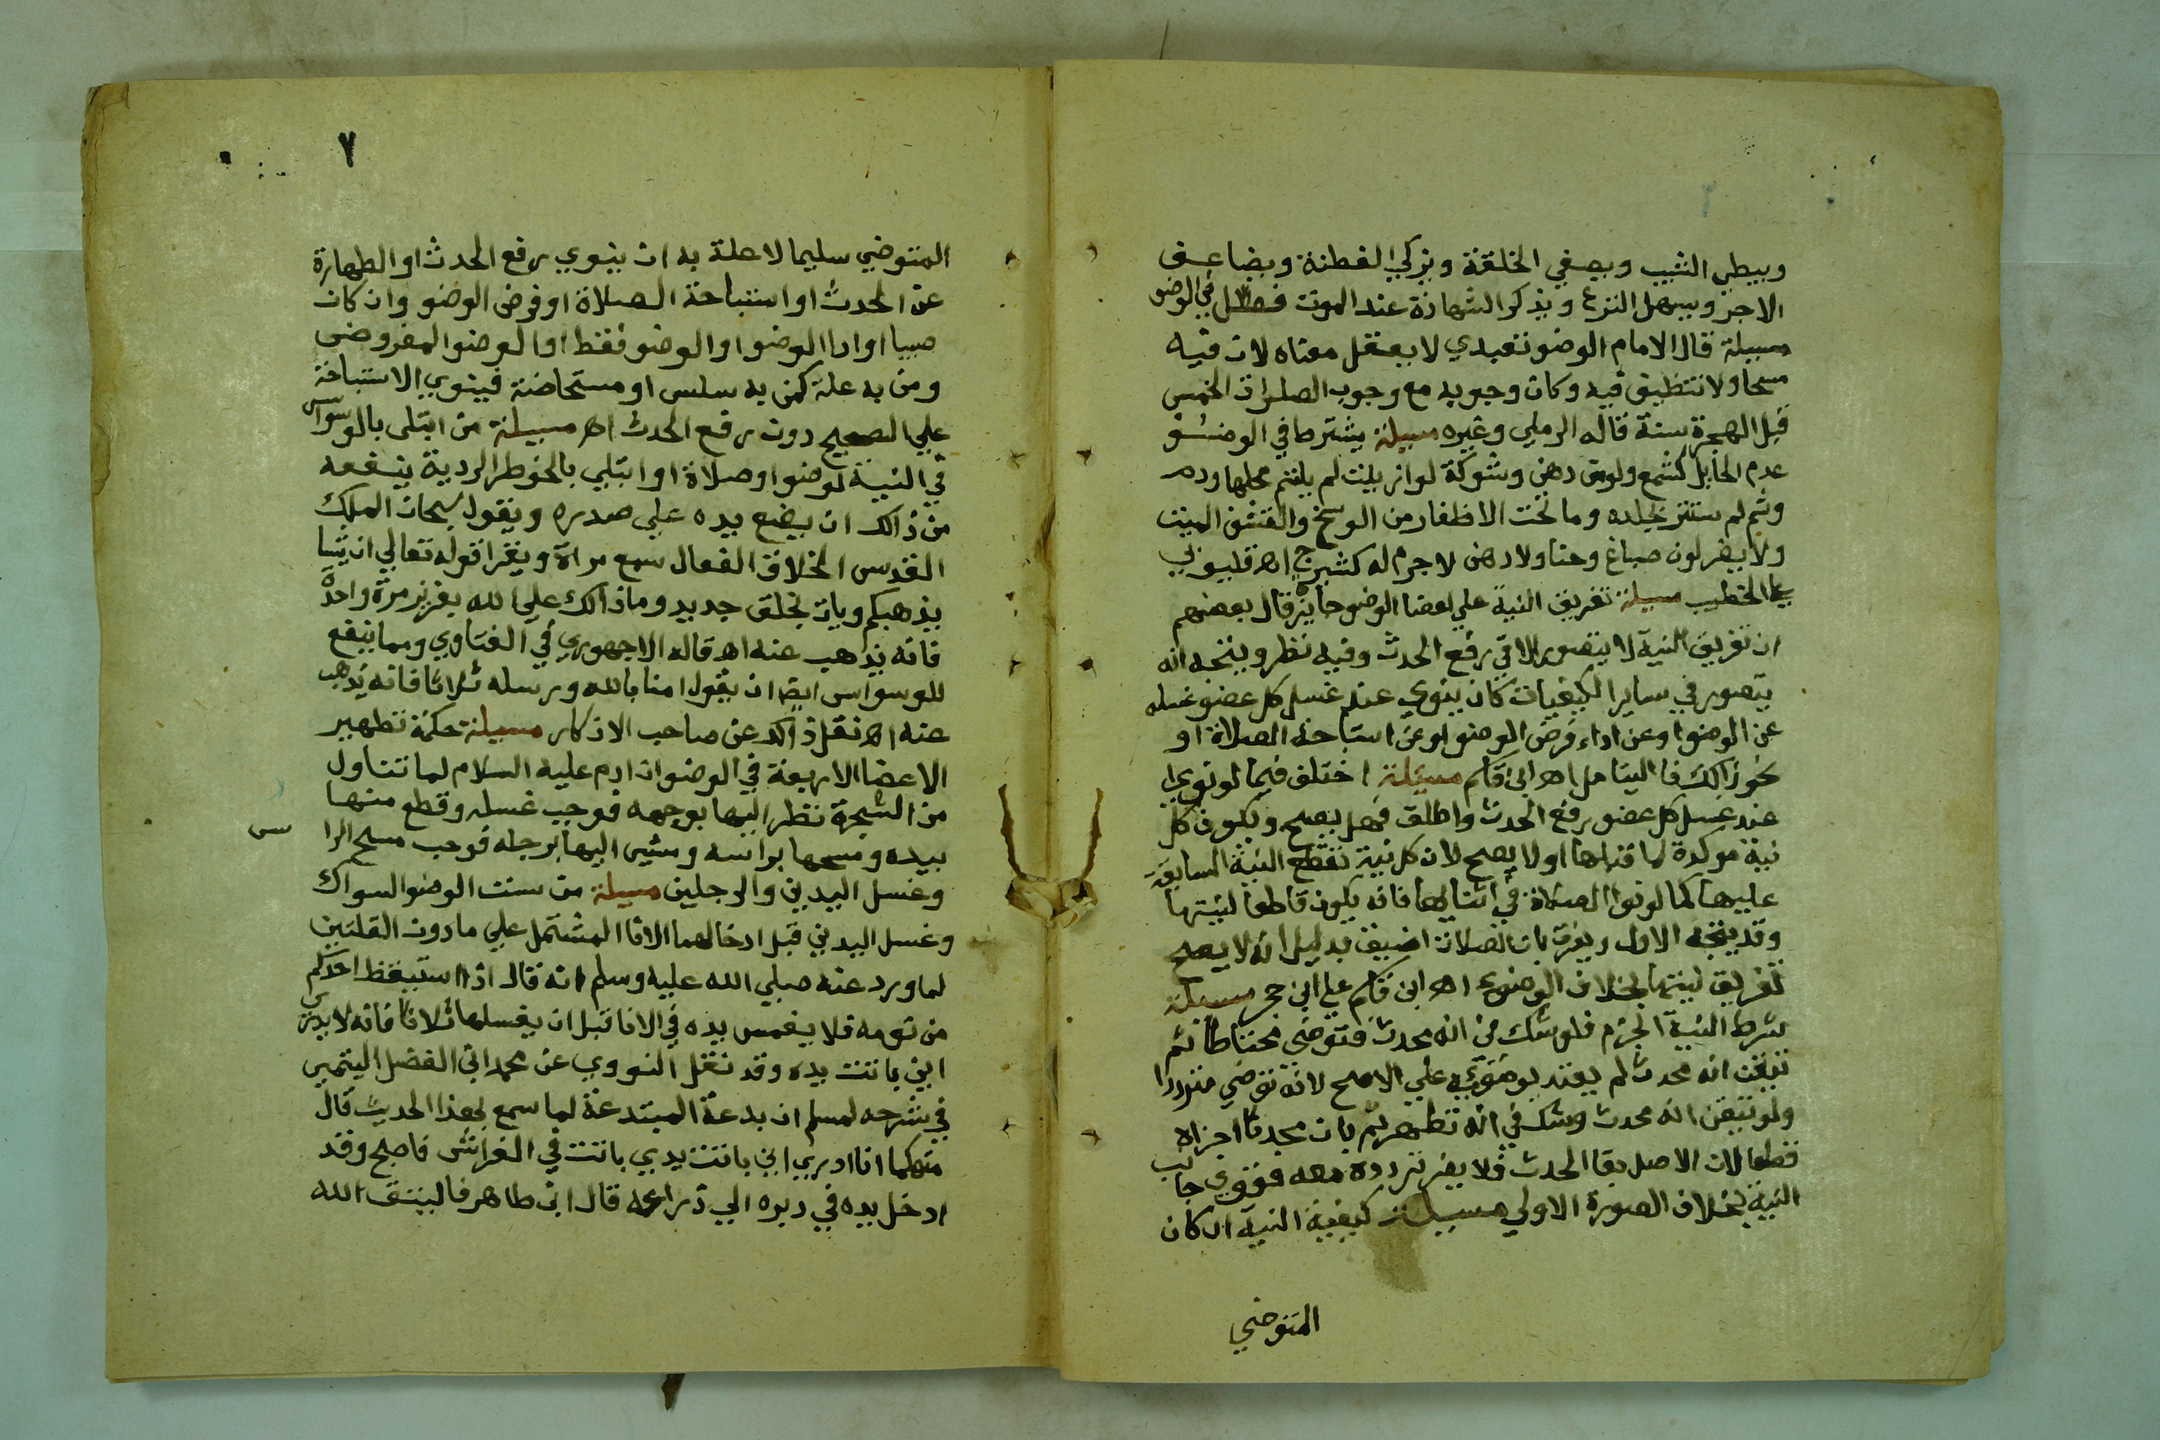 ويبطي الشيب ويصفي الخلقة ويزكي الفطنة ويضاعف
الاجر ويسهل النزع ويذكر الشهادة عند الموت فصل في الوضو
مسيلة قال الامام الوضو تعبدي لا يعقل معناه لان فيه
مسحا ولا تنظيف فيه وكان وجوبه مع وجوب الصلوات الخمس
قبل الهجرة سنة قاله الرملي وغيره مسيلة يشترط في الوضو
عدم الحايل كشمع ولوق دهن وشوكة لو ازيلت لم يلتئم محلها ودم
وشم لم ستتر بجلده وما تحت الاظفار من الوسخ والقشف الميت
ولا يضر لون صباغ وحنا ولا دهن لا جرم له كشيرج اه قليوبي
على الخطيب مسيلة تفريق النية علي اعضا الوضو جايز قال بعضهم
ان تفريق النية لا يتصور الا في رفع الحدث وفيه نظر ويتجه انه
يتصور في ساير الكيفيات كان ينوي عند غسل كل عضو غسله
عن الوضوا وعن اداء فرض الوضو او عن استباحة الصلاة او
نحو ذالك فاليتامل اه ابن قاسم مسيلة اختلف فيما لو نوي
عند غسل كل عضو رفع الحدث واطلق فهل يصح وتكون كل
نية موكدة لما قبلها او لا يصح لان كل نية تقطع النية السابقة
عليها كما لو نوا الصلاة في اثنايها فانه يكون قاطعا لنيتها
وقد يتجه الاول ويفرق بان الصلاة اضيق بدليل انه لا يصح
تفريق نيتها بخلاف الوضو اه ابن قاسم علي ابن حجر مسيلة
شرط النية الجزم فلو شك في انه محدث فتوضي محتاطا ثم
تيقن انه محدث لم يعتد بوضويه علي الاصح لانه توضي مترددا
ولو تيقن انه محدث وشك في انه تطهر ثم بان محدثا اجزاه
قطعا لان الاصل بقا الحدث فلا يضر تردده معه فقوي جانب
النية بخلاف الصورة الاولي مسيلة كيفية النية ان كان
المتوضي
٧
المتوضي سليما لا علة به ان ينوي رفع الحدث او الطهارة
عن الحدث او استباحة الصلاة او فرض الوضو وان كان
صبيا او ادا الوضو او الوضو فقط او الوضو المفروض
ومن به علة كمن به سلس او مستحاضة فينوي الاستباحة
علي الصحيح دون رفع الحدث اه مسيلة من ابتلى بالوسواس
في النية لوضوا وصلاة او ابتلي بالخوطر الردية ينفعه
من ذالك ان يضع يده علي صدره ويقول سبحان الملك
القدس الخلاق الفعال سبع مراة ويقرا قوله تعالي ان يشا
يذهبكم ويات بخلق جديد وما ذالك علي الله بعزيز مرة واحدة
فانه يذاهب عنه اه قاله الاجهوري في الفتاوي ومما ينفع
للوسواس ايضا ان يقول امنا بالله ورسله ثلاثا فانه يذهب
عنه اه نقل ذالك عن صاحب الاذكار مسيلة حكمة تطهير
الاعضا الاربعة في الوضو ان ادم عليه السلام لما تناول
من الشجرة نظر اليها بوجهه فوجب غسله وقطع منها
بيده ومسحها براسه ومشي اليها برجله فوجب مسح الرا
س
وغسل اليدين والرجلين مسيلة من سنت الوضو السواك
وغسل اليدين قبل ادخالهما الانا المشتمل علي ما دون القلتين
لما ورد عنه صلي الله عليه وسلم انه قال اذا استيقظ احدكم
من نومه فلا يغمس يده في الانا قبل ان يغسلها ثلاثا فانه لا يدري
اين باتت يده وقد نقل النووي عن محمد ابن الفضل التيمي
في شرحه لمسلم ان بدعة المبتدعة لما سمع لهذا الحديث قال
متهكما انا ادري اين باتت يدي باتت في الفراش فاصبح وقد
ادخل يده في دبره الي ذراعه قال ابن طاهر فاليتق الله